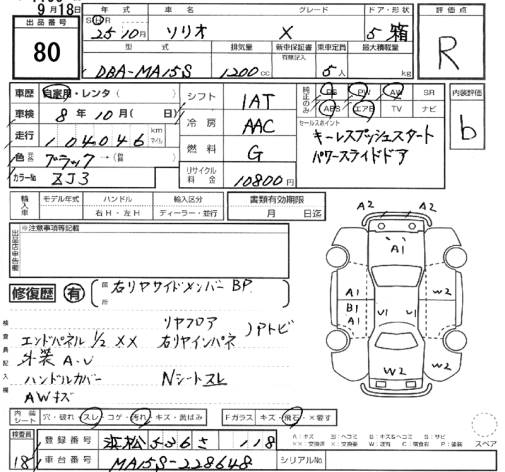 9月18日
出品番号
80
年式 車名 グレード ドア・形状
S H R 25年10月 ソリオ X 5 箱
型式 排気量 新車保証書 有無記入 乗車定員 最大積載量
DBA-MA15S 1200cc 5人 kg
評価点
R
車歴 自家用・レンタ( )
車検 8年10月( 日)
走行 104046 km マイル
色 ブラック→( )
カラーNo ZJ3
シフト 1AT
冷房 AAC
燃料 G
リサイクル料金 10800円
純正のみ PS PW AW SR
ABS エアB TV ナビ
セールスポイント
キーレスプッシュスタート
パワースライドドア
内装評価
b
輸入車 モデル年式 ハンドル 輸入区分
右H・左H ディーラー・並行
書類有効期限
月 日迄
出品店申告
※注意事項等記載
修復歴 有 箇所 右リヤサイドメンバーBP
検査員記入欄
リヤフロア
エンドパネル1/2 XX 右リヤインパネ )Pトビ
外装A.U
ハンドルカバー Nシートスレ
AWキズ
A2 A2
A1
A1 W2
B1
A1 U1 U1 W2
W2
内装シート 穴・破れ・スレ・コゲ・汚れ・キズ・黄ばみ Fガラス キズ・飛石・×要す
検査員 18
登録番号 浜松 526 さ 118
車台番号 MA15S-228648 シリアルNo
スペア